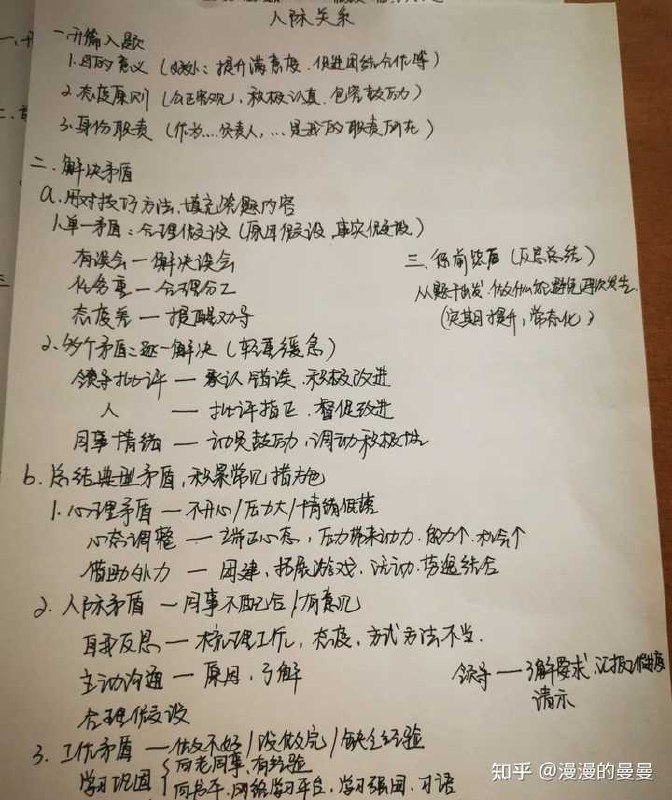 人际关系
一.开篇入题
1.目的意义(内外:提升满意度.促进团结合作等)
2.态度原则(公正客观、积极认真.包容鼓励)
3.身份职责(作为...负责人,...是我的职责所在)
二.解决矛盾
a.用对技巧方法、填充答题内容
1.单一矛盾:合理假设(原因假设、事实假设)
有误会—解决误会
任务重—合理分工
态度差—提醒劝导
三.瞻前毖后(反思总结)
从题干出发.做什么能避免再次发生
(定期提升,常态化)
2.多个矛盾:逐一解决(轻重缓急)
领导批评—承认错误.积极改进
人—批评指正.督促改进
同事情绪—动员鼓励,调动积极性
b.总结典型矛盾,积累常见措施
1.心理矛盾—不开心/压力大/情绪低落
心态调整—端正心态,压力带来动力.能力个.机会个
借助外力—团建、拓展游戏、活动.劳逸结合
2.人际矛盾—同事不配合/有意见
自我反思—梳理工作,态度,方式方法不当.
主动沟通—原因.了解
领导—了解要求、汇报工作进度
请示
合理假设
3.工作矛盾—做不好/没做完/缺乏经验
学习巩固{向老同事.有经验
向书本.网络学习平台,学习强国.习语
知乎 @漫漫的曼曼